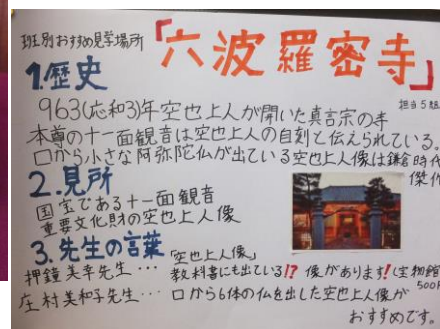 班別おすすめ見学場所
「六波羅密寺」
1.歴史
担当5組
963(応和3)年空也上人が開いた真言宗の寺
本尊の十一面観音は空也上人の自刻と伝えられている。
口から小さな阿弥陀仏が出ている空也上人像は鎌倉時代
傑作
2.見所
国宝である十一面観音
重要文化財の空也上人像
3.先生の言葉
押鐘美幸先生…「空也上人像」
教科書にも出ている!?像があります!(宝物館
500円
庄村美和子先生…口から6体の仏を出した空也上人像が
おすすめです。